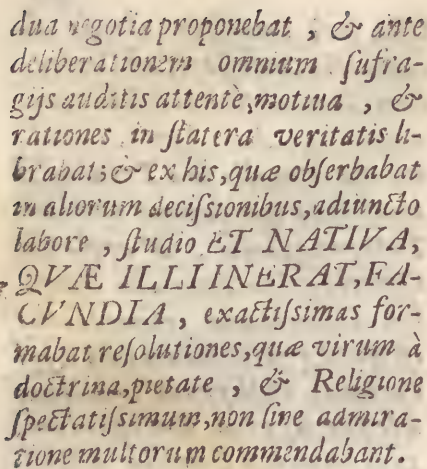 dua negotia proponebat , & ante
deliberationem omnium ſufra-
gijs auditis attentè, motiua , &
rationes in ſtatera veritatis li-
brabat; & ex his, quæ obſerbabat
in aliorum deciſsionibus, adiuncto
labore , ſtudio ET NATIVA,
QVÆ ILLI INERAT, FA-
CVNDIA , exactiſsimas for-
mabat reſolutiones, quæ virum à
doctrina, pietate , & Religione
ſpectatiſsimum, non ſine admira-
tione multorum commendabant.